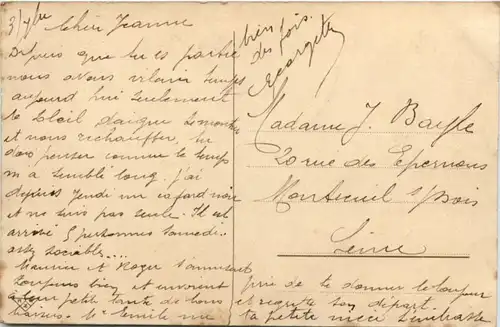 3/7bre Chère Jeanne
Depuis que tu es partie
nous avons vilain temps
aujourd hui seulement
le soleil daigne se montrer
et nous réchauffer, tu
dois penser comme le temps
m a semblé long. j'ai
depuis Jeudi un cafard noir
et ne suis pas seule. Il est
arrivé 5 personnes samedi..
assez sociables....
Maurice et Roger s'amusent
toujours bien et envoient
à leur petite tante de bons
baisers. Mr Emile me
prie de te donner le bonjour
et regrette son départ.
ta petite nièce t'embrasse
bien
des fois.
Madame J. Bayle
20 rue des Epernons
Montreuil s/Bois
Seine